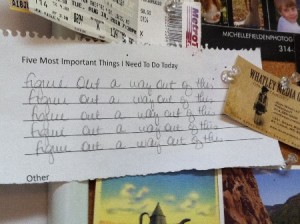 METRO
MICHELLEFIELDENPHOTO/
314-
Five Most Important Things I Need To Do Today
figure out a way out of this
figure out a way out of this
figure out a way out of this
figure out a way out of this
figure out a way out of this
WHATLEY MEDIA
Other